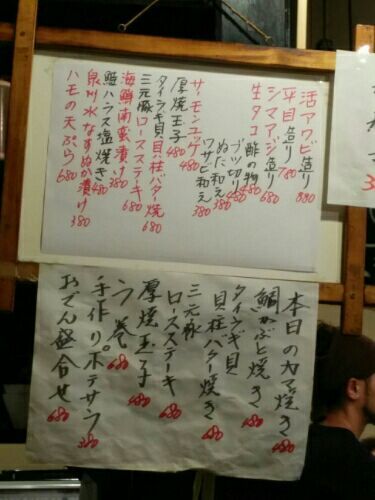 活アワビ造り 880
平目造り 780
シマアジ造り
生タコ 酢の物 480
ブツ切り 480
ぬた和え 380
ワサビ和え 380
サーモンユッケ 480
厚焼玉子 480
タイラギ貝貝柱バター焼 680
三元豚ロースステーキ 680
海鮮南蛮漬け 380
鮭ハラス塩焼き 480
泉州水なすぬか漬け 380
ハモの天ぷら 680
本日のカマ焼き 480
鯛かぶと焼き 680
タイラギ貝
貝柱バター焼き 680
三元豚
ロースステーキ 680
厚焼玉子 480
う巻 680
手作りポテサラ 380
おでん盛合せ 680
380